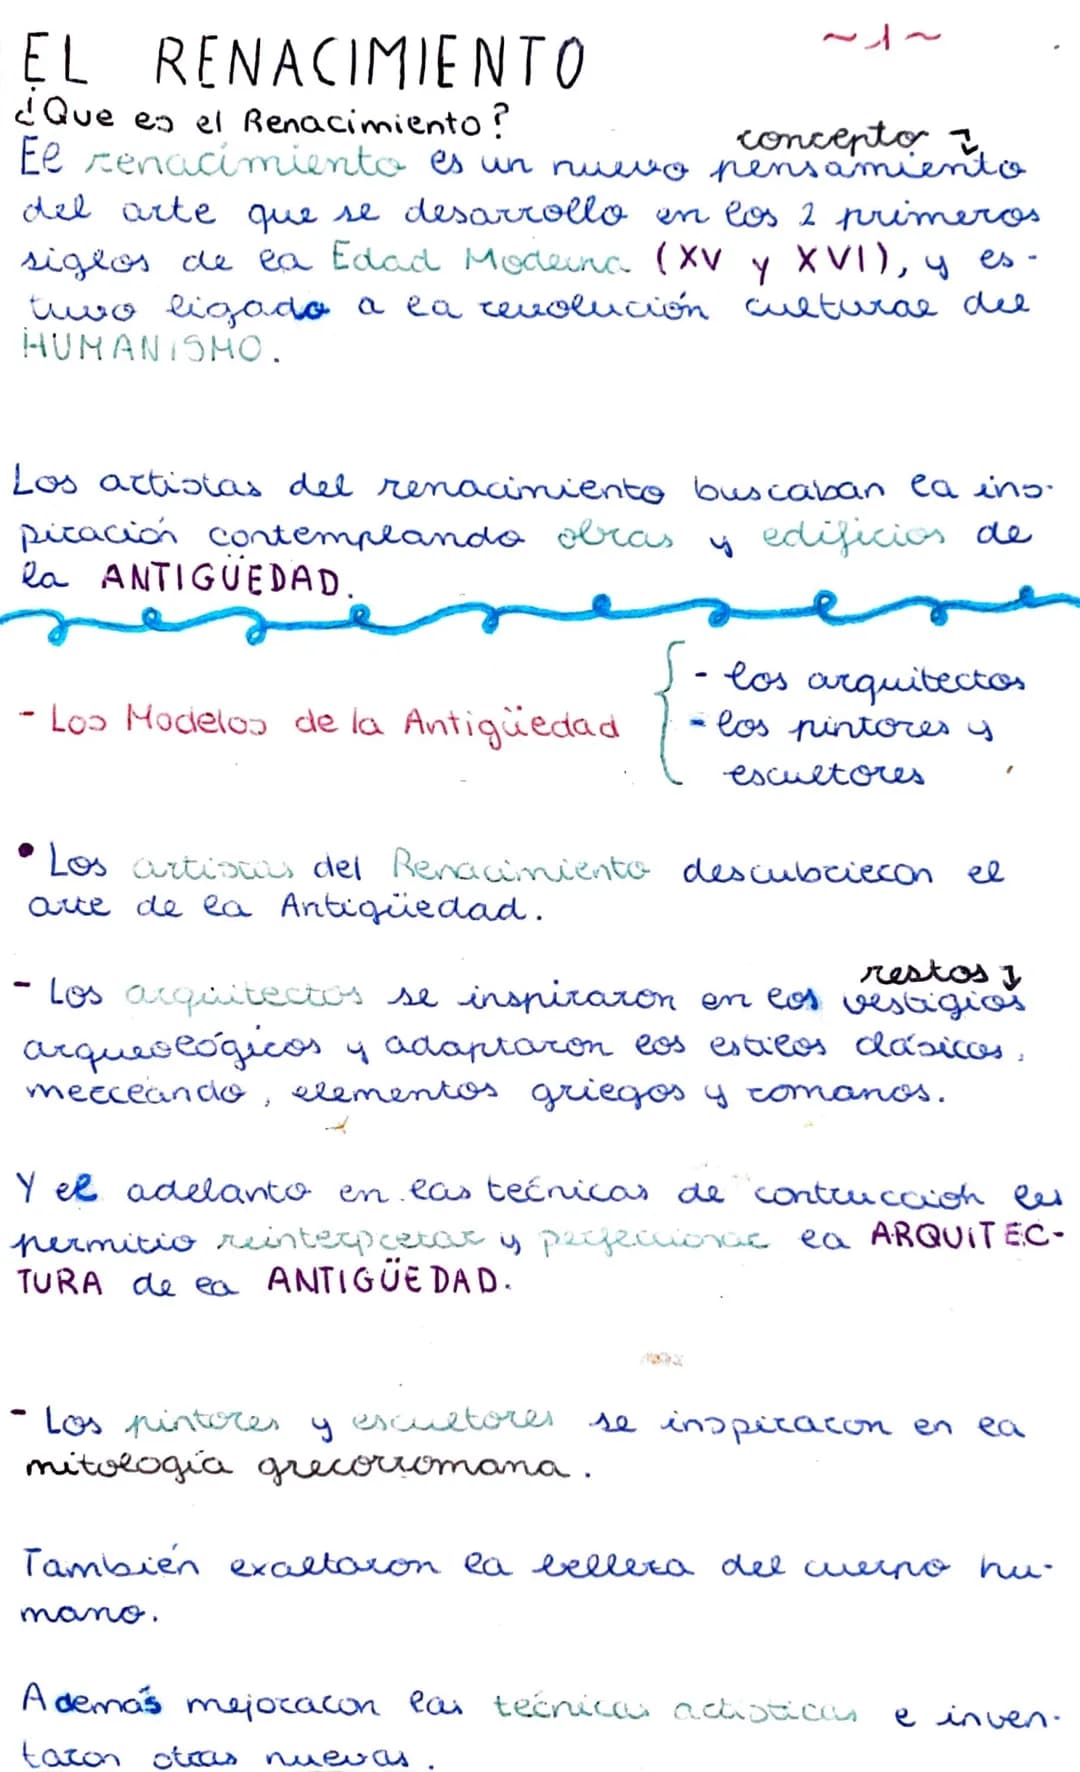 ~1~
EL RENACIMIENTO
¿Que es el Renacimiento?
concepto
El renacimiento es un nuevo pensamiento
del arte que se desarrollo en los 2 primeros
siglos de la Edad Moderna (XV y XVI), y es-
tuvo ligado a la revolución cultural del
HUMANISMO.
Los artistas del renacimiento buscaban la ins-
piración contemplando obras y edificios de
la ANTIGÜEDAD.
- Los Modelos de la Antigüedad
- los arquitectos
- los pintores y
escultores
• Los artistas del Renacimiento descubrieron el
arte de la Antigüedad.
restos
- Los arquitectos se inspiraron en los vestigios
arqueológicos y adaptaron los estilos clásicos,
mezclando, elementos griegos y romanos.
Y el adelanto en las técnicas de contrucción les
permitio reinterpretar y perfecionar la ARQUITEC-
TURA de la ANTIGÜEDAD.
- Los pintores y escultores se inspiraron en la
mitología grecorromana.
También exaltaron la belleza del cuerpo hu-
mano.
Además mejoraron las técnicas artísticas e inven-
taron otras nuevas.